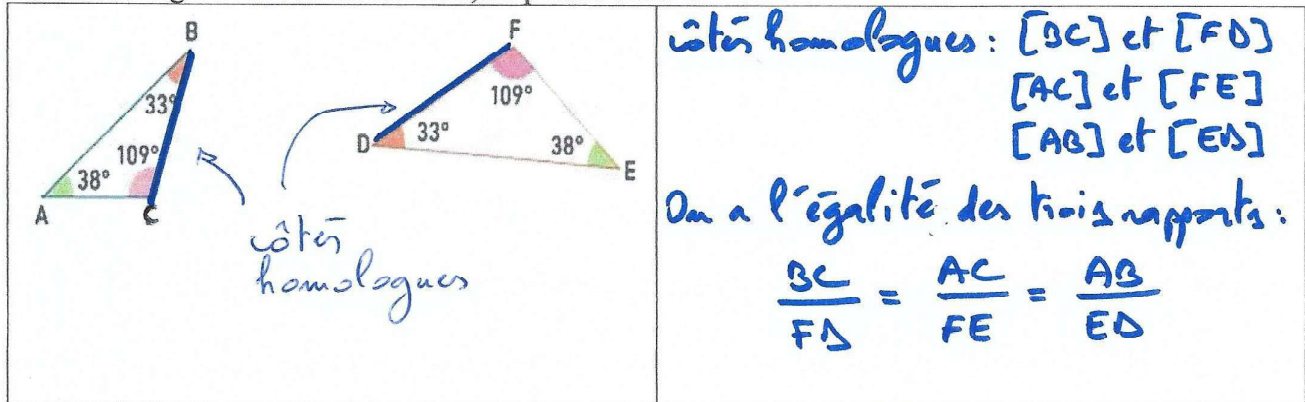 B
33°
109°
38°
A
C
F
109°
D
33°
38°
E
côtés
homologues
côtés homologues : [BC] et [FD]
[AC] et [FE]
[AB] et [ED]
On a l'égalité des trois rapports :
BC/FD = AC/FE = AB/ED